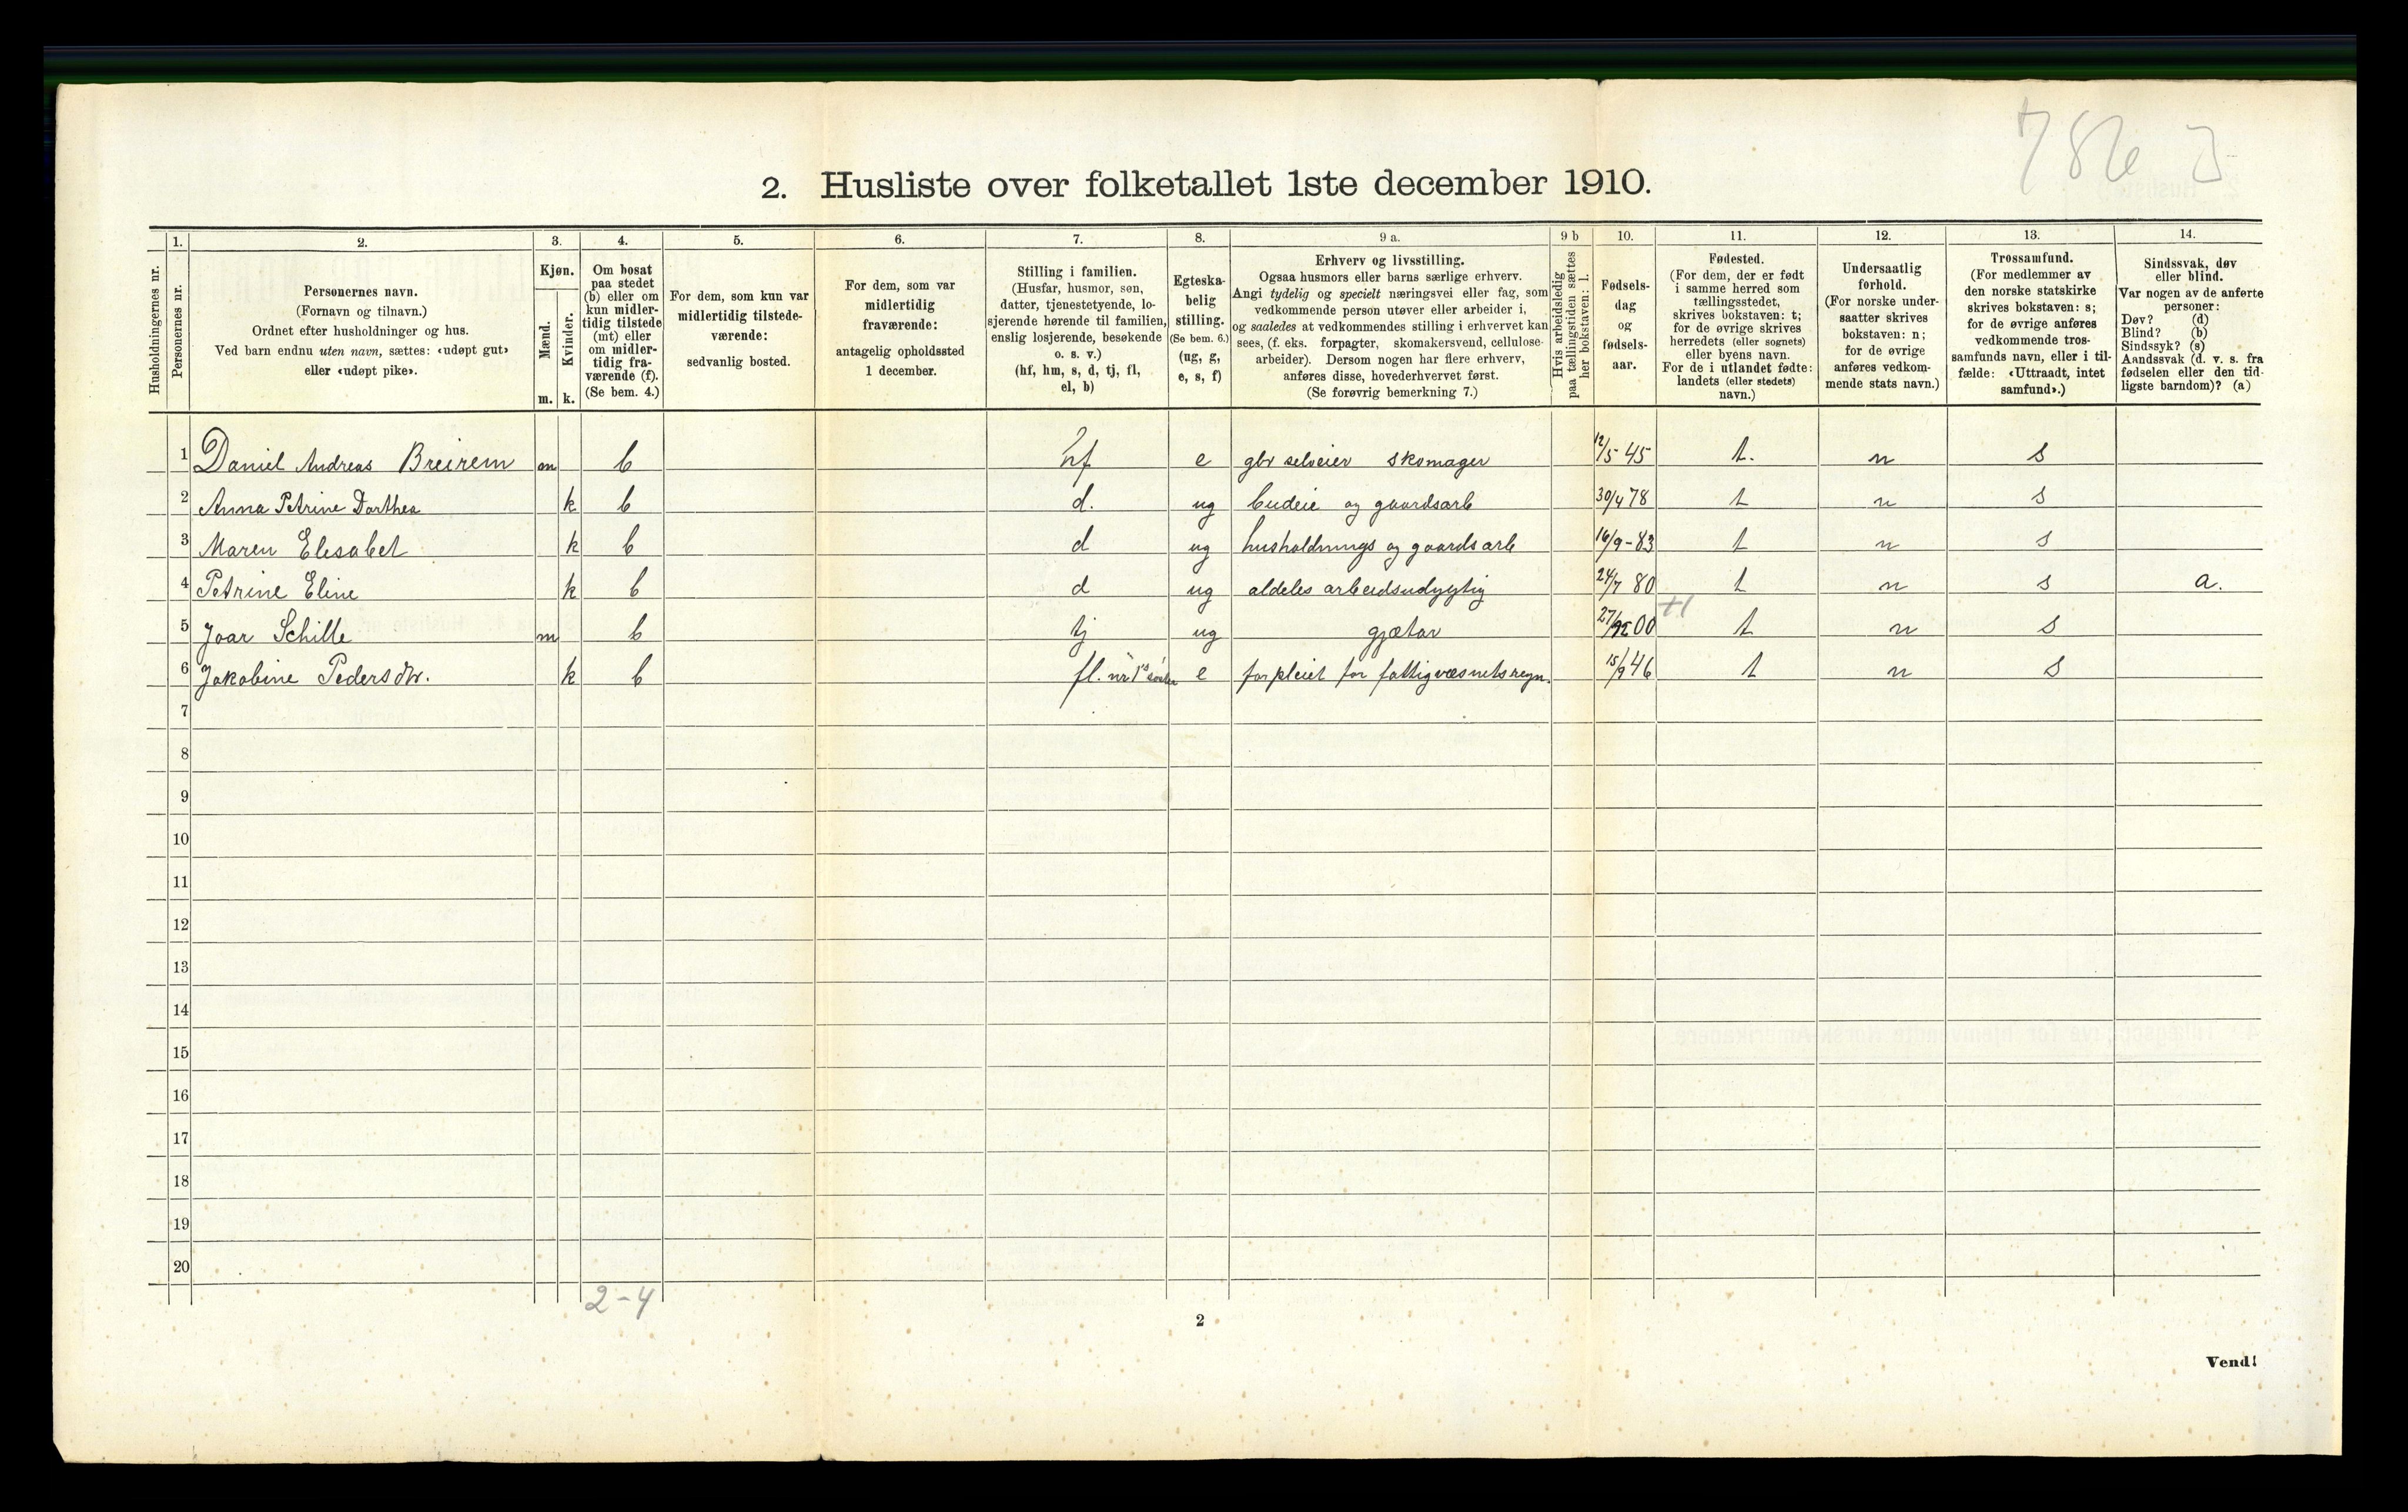 786
2. Husliste over folketallet 1ste december 1910.
Husholdningernes nr.
1. Personernes nr.
2. Personernes navn.
(Fornavn og tilnavn.)
Ordnet efter husholdninger og hus.
Ved barn endnu uten navn, sættes: «udøpt gut»
eller «udøpt pike».
3. Kjøn.
Mænd. m.
Kvinder. k.
4. Om bosat
paa stedet
(b) eller om
kun midler-
tidig tilstede
(mt) eller
om midler-
tidig fra-
værende (f).
(Se bem. 4.)
5. For dem, som kun var
midlertidig tilstede-
værende:
sedvanlig bosted.
6. For dem, som var
midlertidig
fraværende:
antagelig opholdssted
1 december.
7. Stilling i familien.
(Husfar, husmor, søn,
datter, tjenestetyende, lo-
sjerende hørende til familien,
enslig losjerende, besøkende
o. s. v.)
(hf, hm, s, d, tj, fl,
el, b)
8. Egteska-
belig
stilling.
(Se bem. 6.)
(ug, g,
e, s, f)
9 a. Erhverv og livsstilling.
Ogsaa husmors eller barns særlige erhverv.
Angi tydelig og specielt næringsvei eller fag, som
vedkommende person utøver eller arbeider i,
og saaledes at vedkommendes stilling i erhvervet kan
sees, (f. eks. forpagter, skomakersvend, cellulose-
arbeider). Dersom nogen har flere erhverv,
anføres disse, hovederhvervet først.
(Se forøvrig bemerkning 7.)
9 b Hvis arbeidsledig
paa tællingstiden sættes
her bokstaven: l.
10. Fødsels-
dag
og
fødsels-
aar.
11. Fødested.
(For dem, der er født
i samme herred som
tællingsstedet,
skrives bokstaven: t;
for de øvrige skrives
herredets (eller sognets)
eller byens navn.
For de i utlandet fødte:
landets (eller stedets)
navn.)
12. Undersaatlig
forhold.
(For norske under-
saatter skrives
bokstaven: n;
for de øvrige
anføres vedkom-
mende stats navn.)
13. Trossamfund.
(For medlemmer av
den norske statskirke
skrives bokstaven: s;
for de øvrige anføres
vedkommende tros-
samfunds navn, eller i til-
fælde: «Uttraadt, intet
samfund».)
14. Sindssvak, døv
eller blind.
Var nogen av de anførte
personer:
Døv? (d)
Blind? (b)
Sindssyk? (s)
Aandssvak (d. v. s. fra
fødselen eller den tid-
ligste barndom)? (a)
1 Daniel Andreas Breirem m b hf e gbr selveier skomager 12/5 45 t. n s
2 Anna Petrine Dorthea k b d. ug budeie og gaardsarb 30/4 78 t n s
3 Maren Elesabet k b d ug husholdnings og gaardsarb 16/9-83 t n s
4 Petrine Eline k b d ug aldeles arbeidsudygtig 24/7 80 t n s a.
5 Joar Schille m b tj ug gjætar 27/12 00 t n s
6 Jakobine Pedersdtr. k b fl. nr 1's e forpleiet for fattigvæsnets regn. 15/9 46 t n s
7
8
9
10
11
12
13
14
15
16
17
18
19
20
2-4
2
Vend!